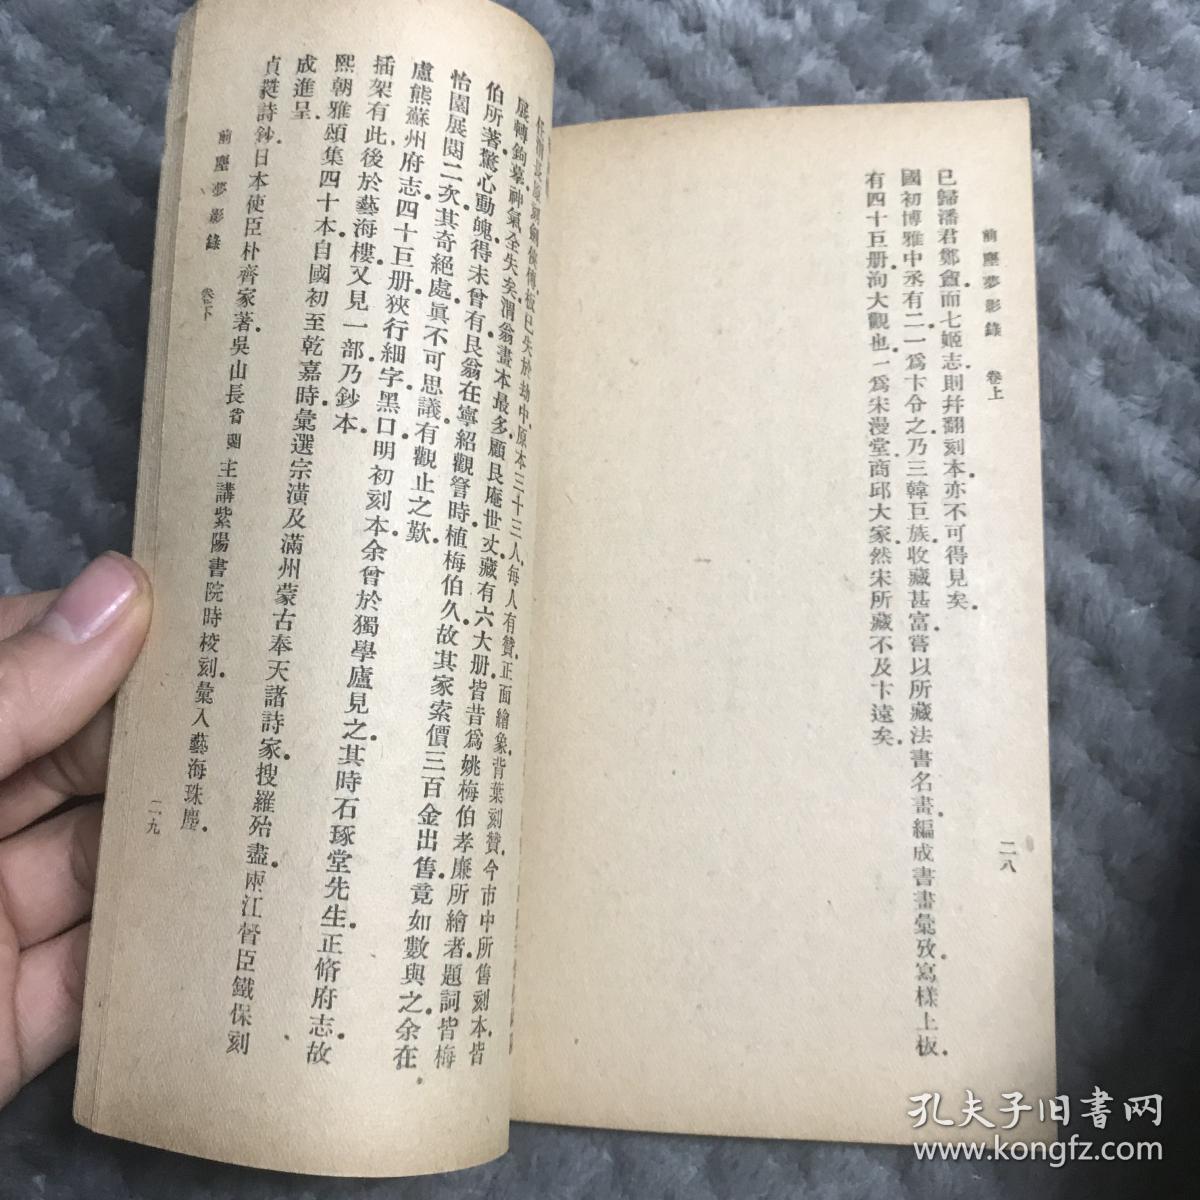 前塵夢影錄 卷上 二八
已歸潘君鄭盦而七姬志則幷翻刻本亦不可得見矣
國初博雅中丞有二一爲卞令之乃三韓巨族收藏甚富嘗以所藏法書名畫編成書畫彙攷寫樣上板
有四十巨册洵大觀也一爲宋漫堂商邱大家然宋所藏不及卞遠矣
板已失於劫中原本三十三人每人有贊正面繪象背葉刻贊今市中所售刻本皆
展轉鉤摹神氣全失矣渭翁畫本最多顧艮庵世丈藏有六大册皆昔爲姚梅伯孝廉所繪者題詞皆梅
伯所著驚心動魄得未曾有艮翁在寧紹觀詧時植梅伯久故其家索價三百金出售竟如數與之余在
怡園展閱二次其奇絕處眞不可思議有觀止之歎
盧熊蘇州府志四十巨册狹行細字黑口明初刻本余曾於獨學廬見之其時石琢堂先生正脩府志故
插架有此後於藝海樓又見一部乃鈔本
熙朝雅頌集四十本自國初至乾嘉時彙選宗潢及滿州蒙古奉天諸詩家搜羅殆盡兩江督臣鐵保刻
成進呈
貞蕤詩鈔日本使臣朴齊家著吳山長省蘭主講紫陽書院時校刻彙入藝海珠塵
前塵夢影錄 卷下 二九
孔夫子旧书网
www.kongfz.com